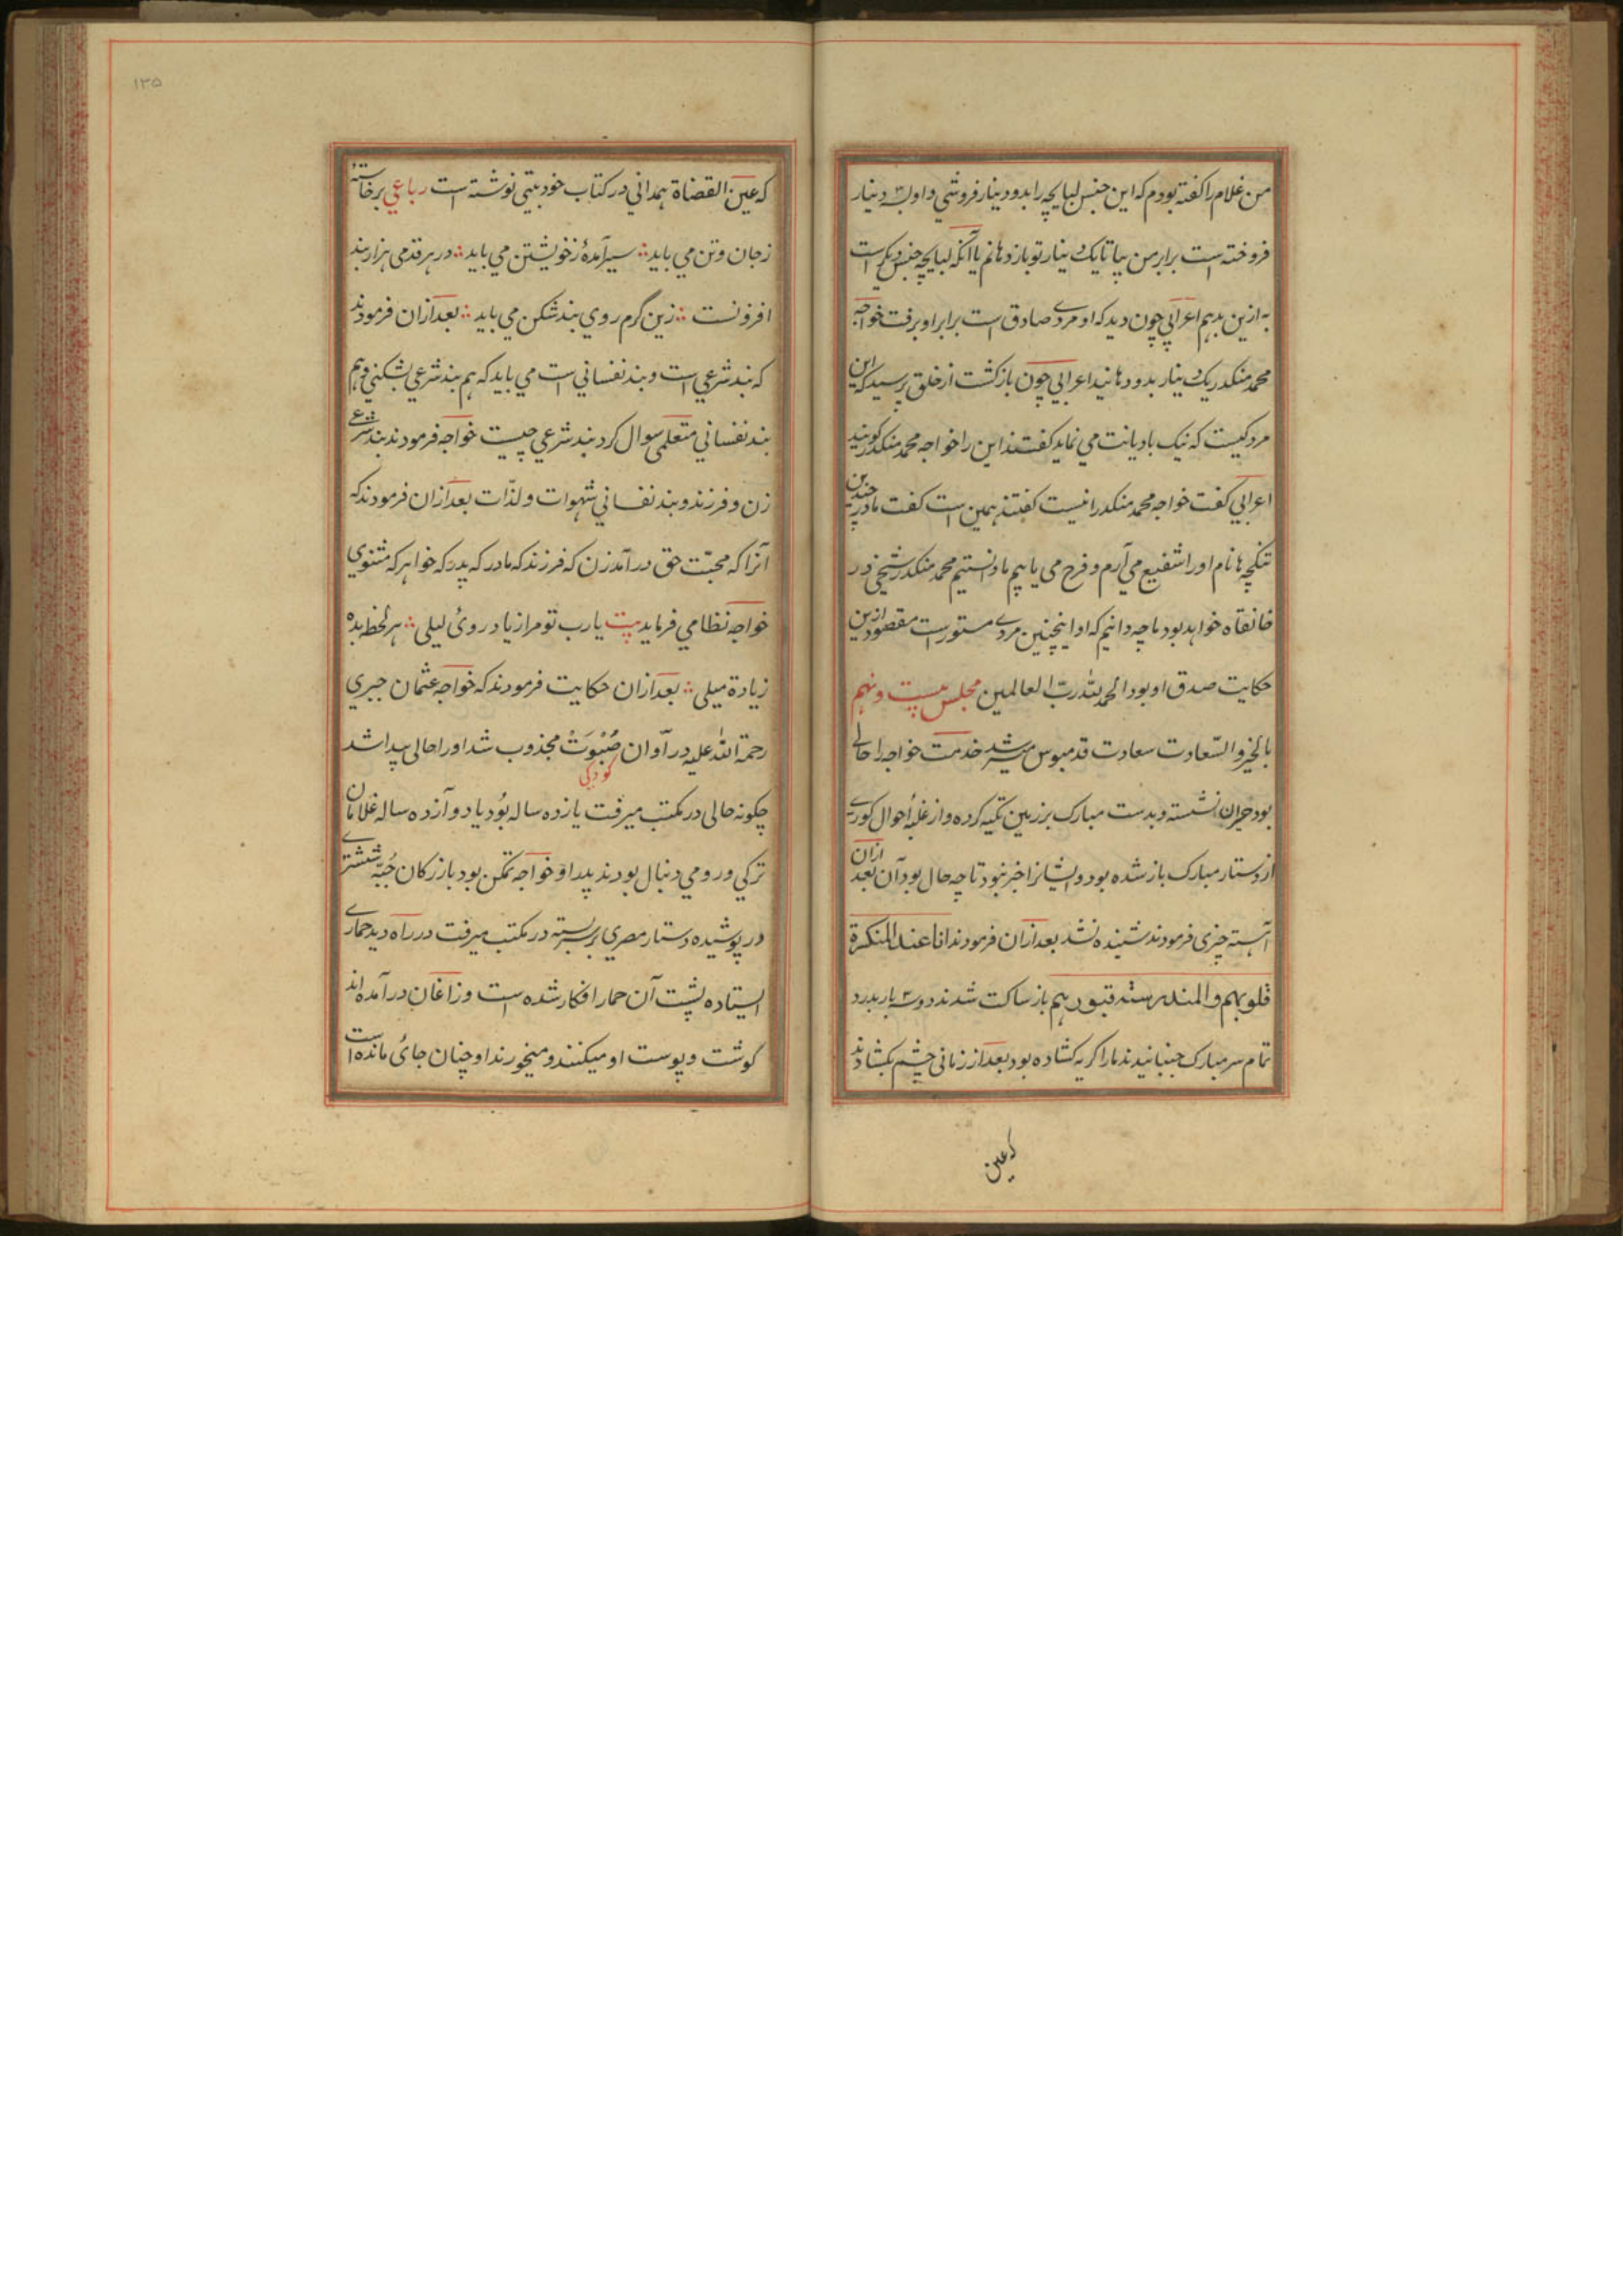 من غلام را کفته بودم که این جنس لبایچه را بدو دینار فروشی و او به سه دینار
فروخته است برابر من بیا تا یک دینار تو باز دهانم یا آنکه لبایچه جنس دیکر است
به ازین بدهم اعرابی چون دید که او مردے صادق است برابر او برفت خواجه
محمد منکدر یک دینار بدو دهانید اعرابی چون بازکشت از خلق پرسید که این
مرد کیست که نیک بادیانت می نماید کفتند این را خواجه محمد منکدر کویند
اعرابی کفت خواجه محمد منکدر اینست کفتند همین است کفت ما در چندین
تنکچه ها نام او را شفیع می آرم و فرح می یابیم ما دانستیم محمد منکدر شیخی در
خانقاه خواهد بود ما چه دانیم که او اینچنین مردے مستور است مقصود ازین
حکایت صدق او بود الحمد لله رب العالمین مجلس بیست و نهم
بالخیر و السّعادت سعادت قدمبوس میسر شد خدمت خواجه را حالے
بود حیران نشسته و بدست مبارک بر زمین تکیه کرده و از غلبهٔ احوال کورے
از دستار مبارک باز شده بود و ایشانرا خبر نبود تا چه حال بود آن بعد ازان
آهسته چیزی فرمودند شنیده نشد بعد ازان فرمودند انا عند المنکسرة
قلوبهم و المندرسته قبورهم باز ساکت شدند دو سه بار بدرد
تمام سر مبارک جنبانیدند ما را کریه کشاده بود بعد از زمانی چشم بکشادند
که عین
۱۳۵
که عین القضاة همدانی در کتاب خود بیتی نوشته است رباعي برخاستهٔ
ز جان و تن می باید ∴ سیر آمدهٔ ز خویشتن می باید ∴ در هر قدمی هزار بند
افزونست ∴ زین کرم روی بند شکن می باید ∴ بعد ازان فرمودند
که بند شرعی است و بند نفسانی است می باید که هم بند شرعی بشکنی و هم
بند نفسانی متعلمی سوال کرد بند شرعی چیست خواجه فرمودند بند شرعے
زن و فرزند و بند نفسانی شهوات و لذّات بعد ازان فرمودند که
آنرا که محبّت حق در آمد زن که فرزند که مادر که پدر که خواهر که مثنوي
خواجه نظامی فرماید بیت یارب تو مرا زیاد روئ لیلی ∴ هر لحظه بده
زیادة میلی ∴ بعد ازان حکایت فرمودند که خواجه عثمان حیری
رحمة الله علیه در آوان صُبُوَتْ مجذوب شد او را حالی پیدا شد
کودکی
چکونه حالی در مکتب میرفت یازده ساله بُود یا دوآزده ساله غلامان
ترکي و رومي دنبال بودند پدر او خواجه تمکن بود بازرکان جُبّه ششترے
در پوشیده دستار مصری بر سر بسته در مکتب میرفت در راه دید حمارے
ایستاده پشت آن حمار افکار شده است و زاغان در آمده اند
کوشت و پوست او میکنند و میخورند او چنان جائ مانده است